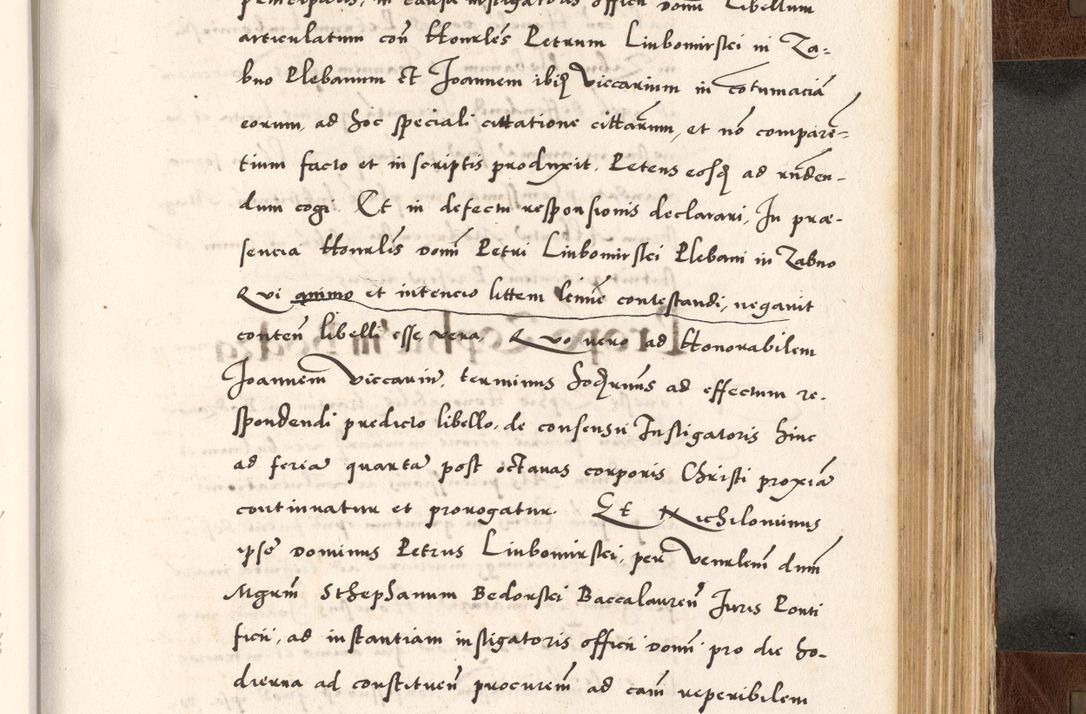 principalis, in causa instigatoris officii domi Libellum
articulatum con Honrles Petrum Liubomirskei in Za-
bno Plebanum et Joannem ibiq Viccarium in cotumacia
eorum, ad hoc speciali cittatione cittarum, et no comparen-
tium facto et in scriptis produxit. Petens eosq ad rnden-
dum cogi. Et in defectu responsionis declarari, In præ-
sencia Honrles domi Petri Liubomirskei Plebani in Zabno
Qui animo et intencio littem leinne contestandi, negavit
conten libelli esse vera, Quo vero ad Honorabilem
Joannem Viccariu, terminus hodrnus ad effectum re-
spondendi predicto libello, de consensu Instigatoris hinc
ad feria quarta post octavas corporis Christi proxia
continuatur et prorogatur. Et Nichilominus
ipse dominus Petrus Liubomirskei, per Venrlem dum
Mgrm Sthephanum Bedorskei Baccalauren Juris Ponti
ficii, ad instantiam instigatoris officii domi pro die ho-
dierna ad constituen procurem ad cam reperibilem